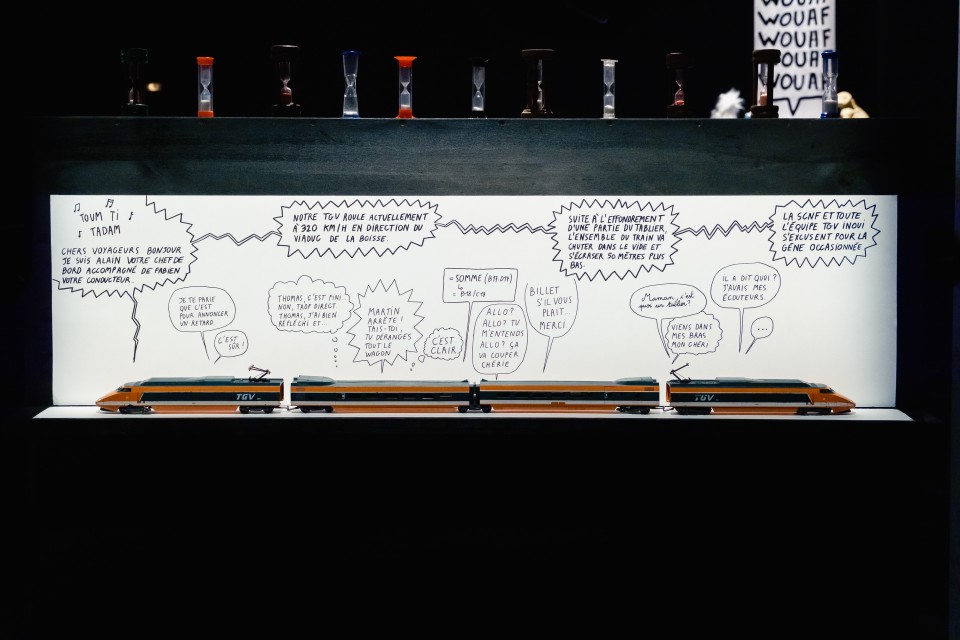 WOUAF
WOUAF
WOUAF
WOUAF
WOUAF
TOUM TI
TADAM
CHERS VOYAGEURS BONJOUR
JE SUIS ALAIN VOTRE CHEF DE
BORD ACCOMPAGNÉ DE FABIEN
VOTRE CONDUCTEUR.
NOTRE TGV ROULE ACTUELLEMENT
À 320 KM/H EN DIRECTION DU
VIADUC DE LA BOISSE.
SUITE À L'EFFONDREMENT
D'UNE PARTIE DU TABLIER,
L'ENSEMBLE DU TRAIN VA
CHUTER DANS LE VIDE ET
S'ÉCRASER 50 MÈTRES PLUS
BAS.
LA SCNF ET TOUTE
L'ÉQUIPE TGV INOUI
S'EXCUSENT POUR LA
GÊNE OCCASIONNÉE
JE TE PARIE
QUE L'EST
POUR ANNONCER
UN RETARD
C'EST
SÛR!
THOMAS, C'EST FINI..
NON, TROP DIRECT.
THOMAS, J'AI BIEN
REFLÉCHI ET...
MARTIN
ARRÊTE!
TAIS-TOI,
TU DÉRANGES
TOUT LE
WAGON
C'EST
CLAIR
= SOMME (B17:D17)
= B18/C18
ALLO?
ALLO? TU
M'ENTENDS
ALLO? ÇA
VA COUPER
CHÉRIE
BILLET
S'IL VOUS
PLAIT...
MERCI.
Maman, c'est
quoi un tablier?
VIENS DANS
MES BRAS
MON CHÉRI
IL A DIT QUOI?
J'AVAIS MES
ÉCOUTEURS.
...
TGV
TGV